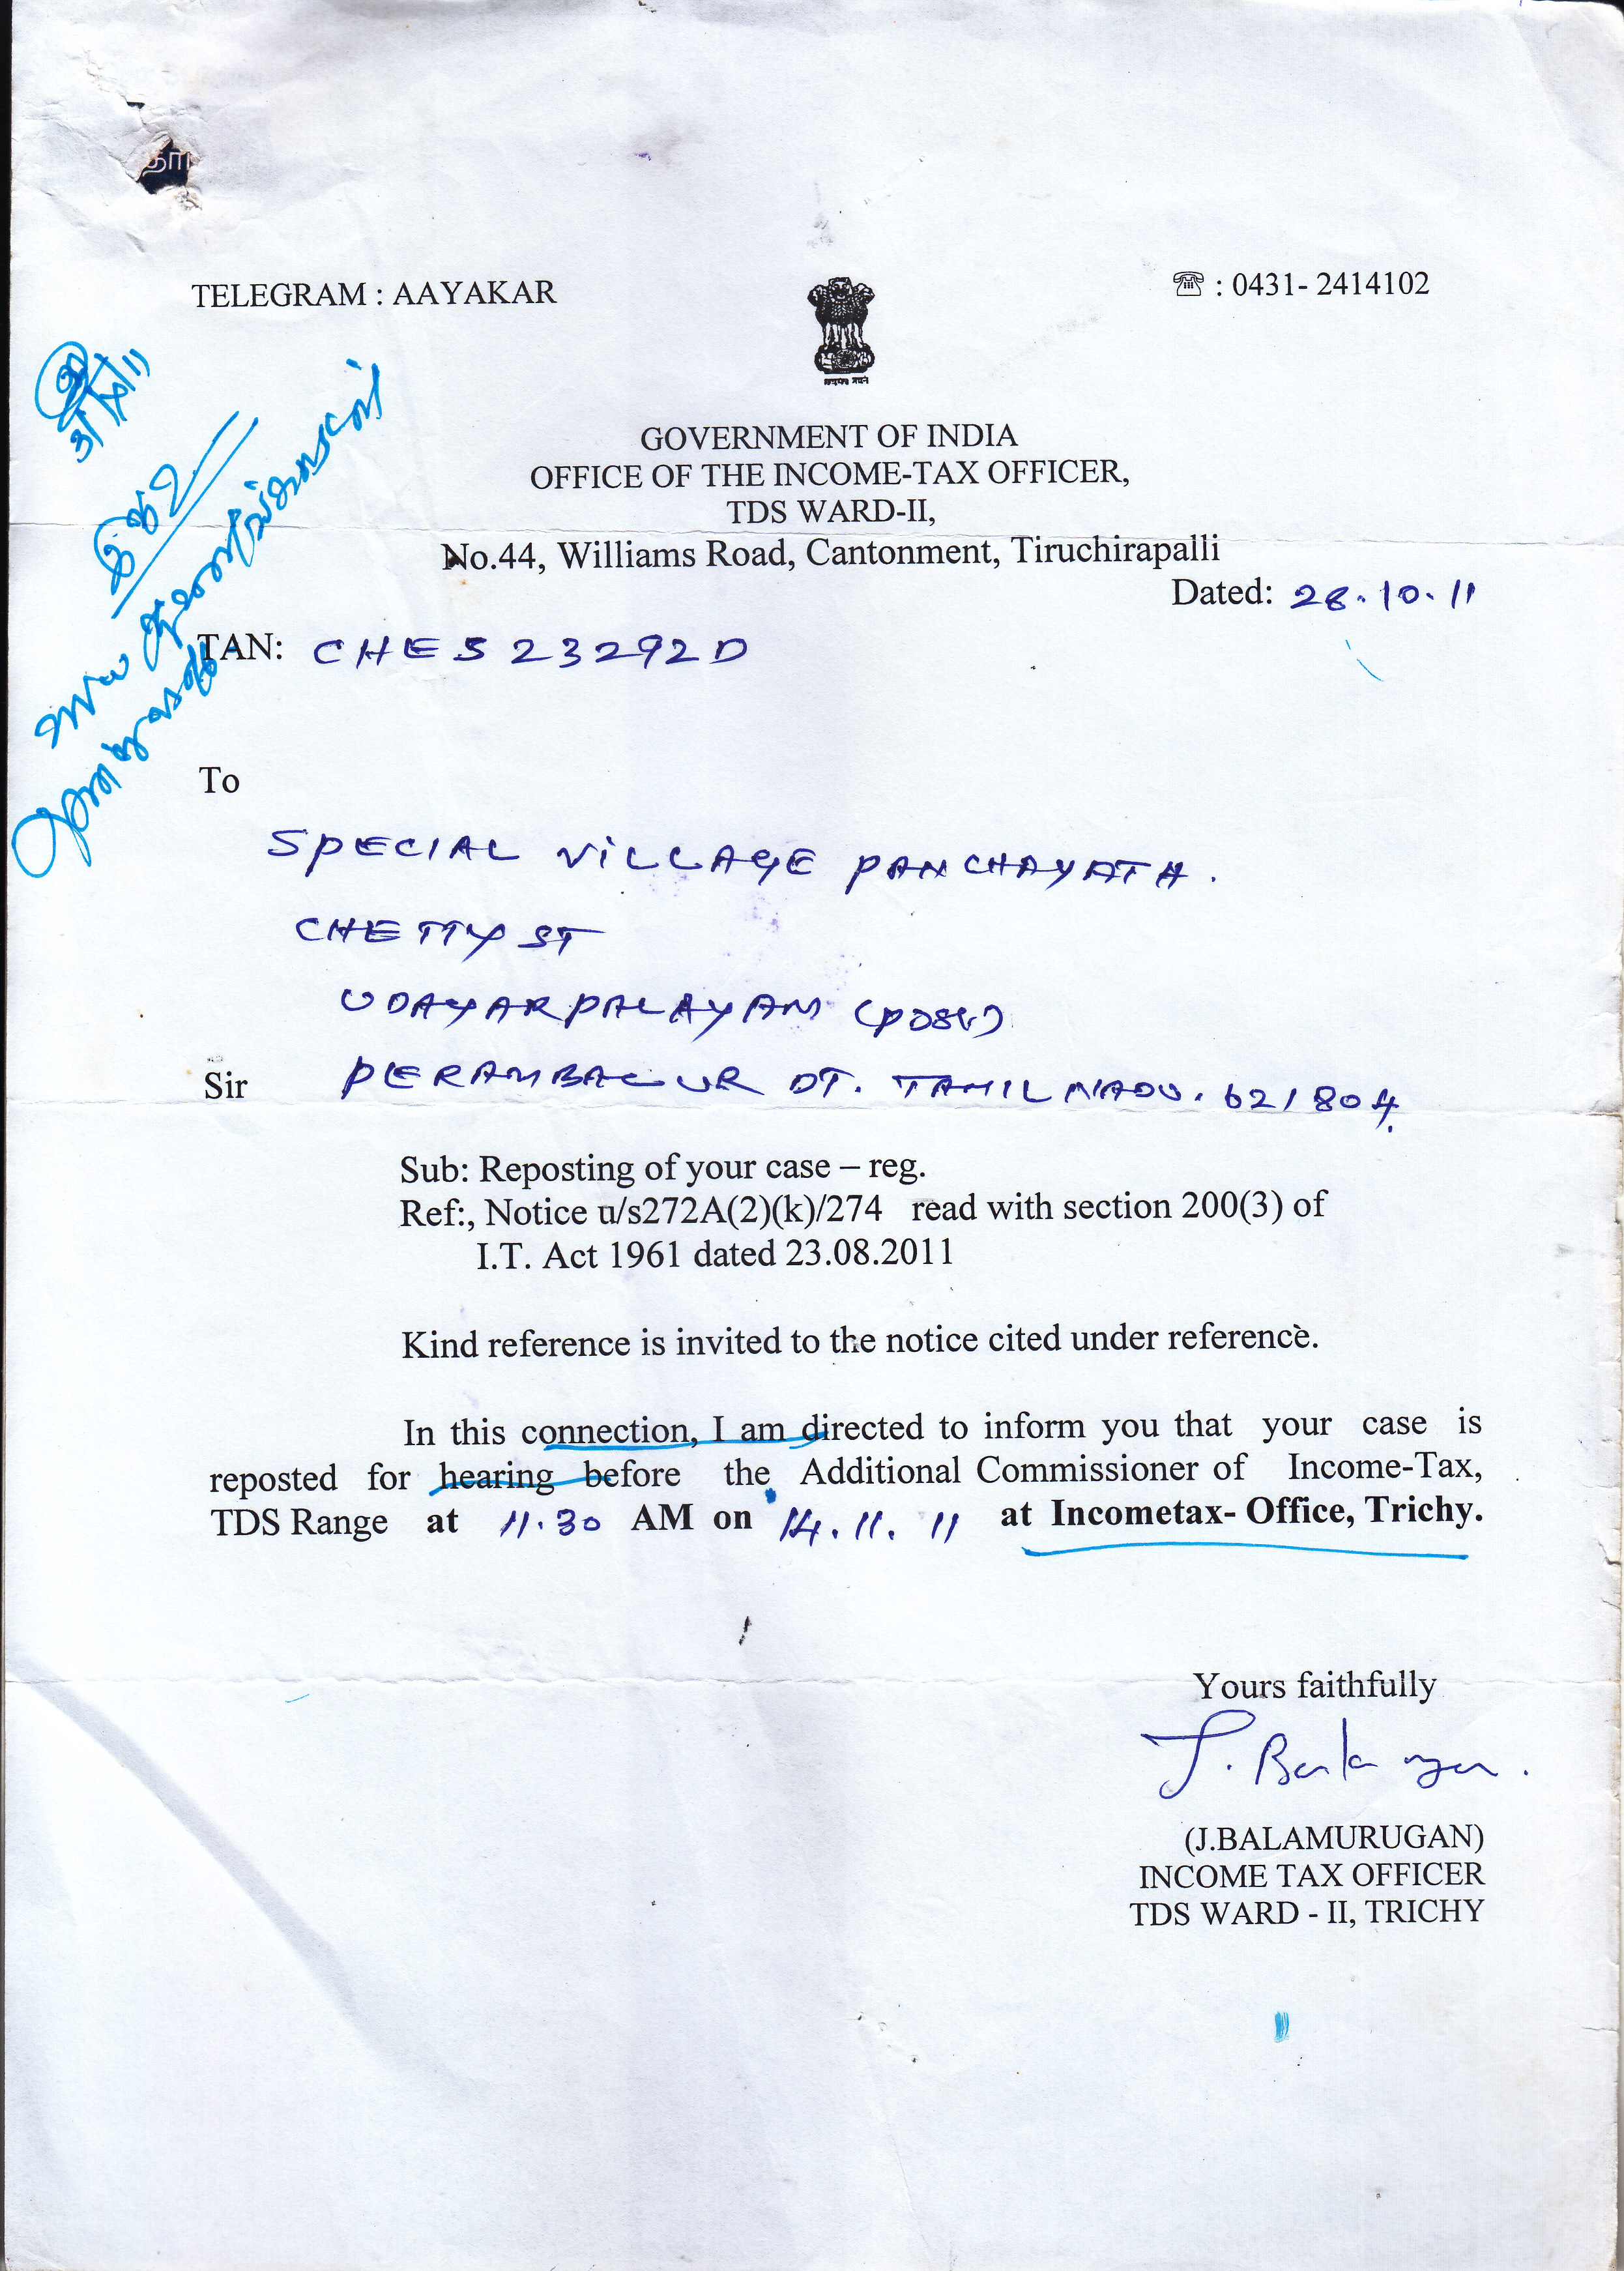 தா
TELEGRAM : AAYAKAR
☎ : 0431- 2414102
GOVERNMENT OF INDIA
OFFICE OF THE INCOME-TAX OFFICER,
TDS WARD-II,
No.44, Williams Road, Cantonment, Tiruchirapalli
Dated: 28.10.11
TAN: CHES23292D
To
SPECIAL VILLAGE PANCHAYATH.
CHETTY ST
UDAYARPALAYAM (POST)
Sir
PERAMBALUR DT. TAMILNADU. 621804.
Sub: Reposting of your case – reg.
Ref:, Notice u/s272A(2)(k)/274 read with section 200(3) of
I.T. Act 1961 dated 23.08.2011
Kind reference is invited to the notice cited under reference.
In this connection, I am directed to inform you that your case is
reposted for hearing before the Additional Commissioner of Income-Tax,
TDS Range at 11.30 AM on 14.11.11 at Incometax- Office, Trichy.
Yours faithfully
(J.BALAMURUGAN)
INCOME TAX OFFICER
TDS WARD - II, TRICHY